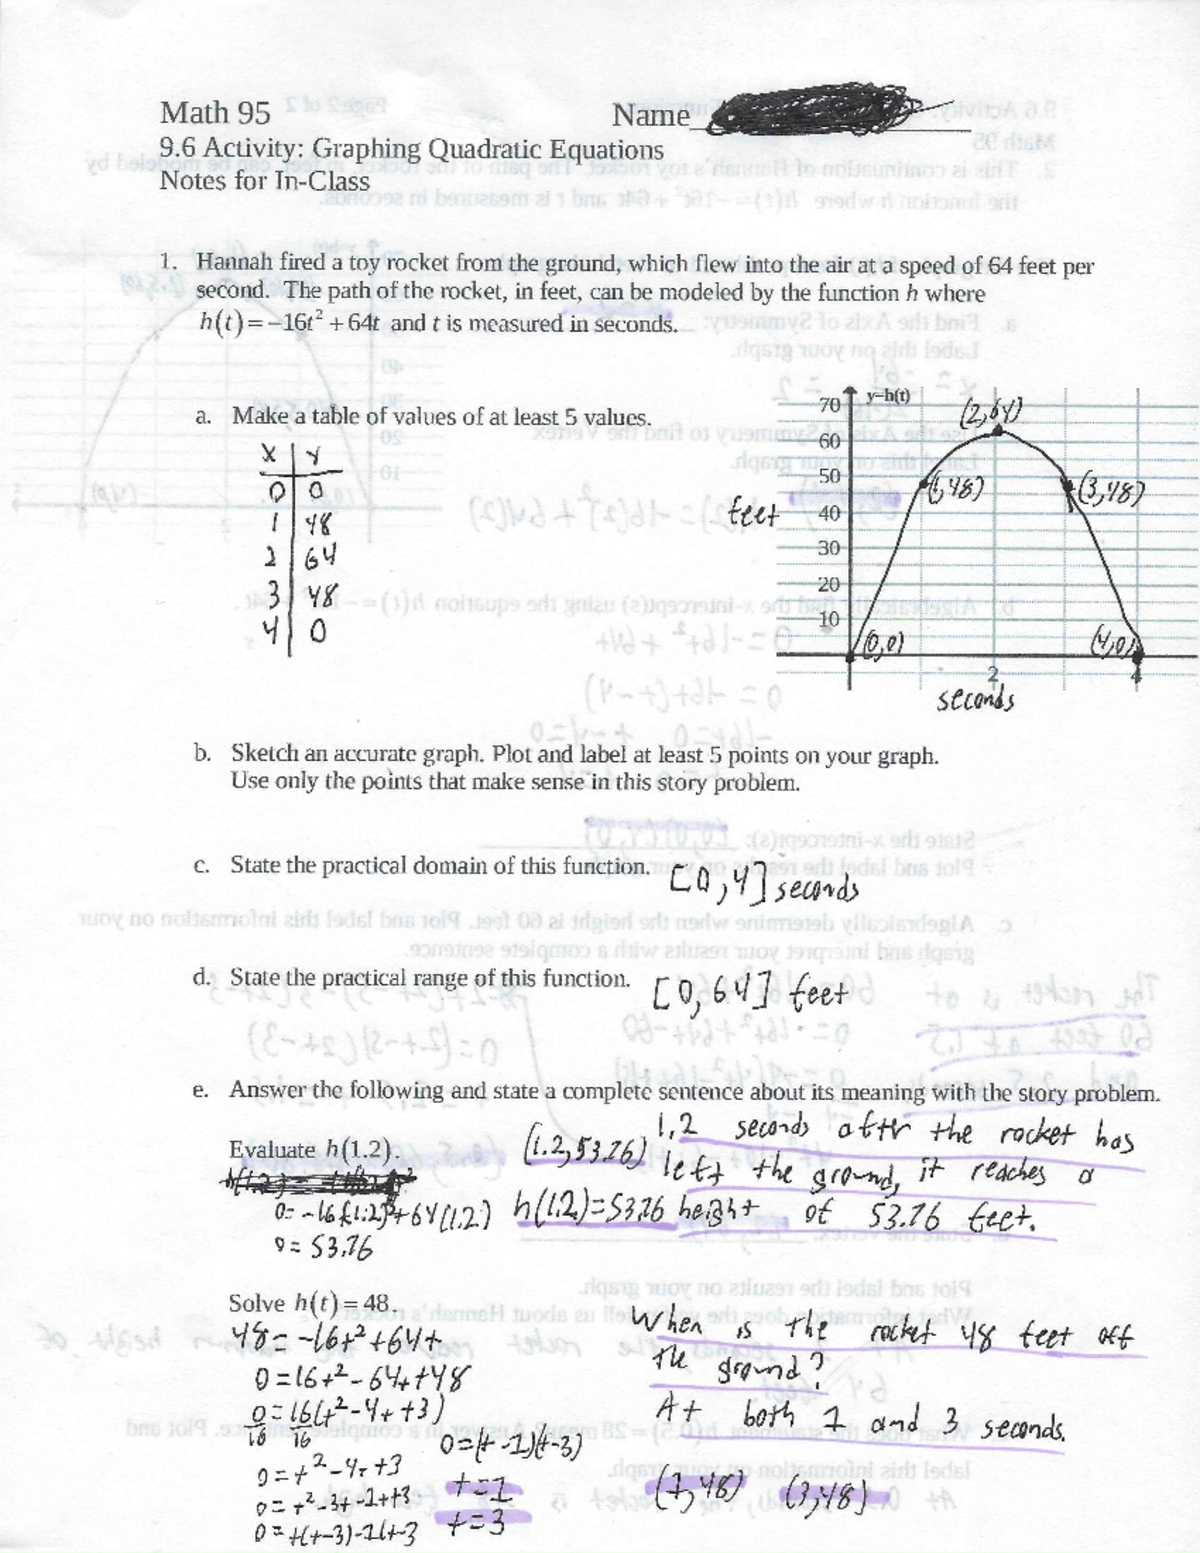 Math 95
Name
9.6 Activity: Graphing Quadratic Equations
Notes for In-Class
1. Hannah fired a toy rocket from the ground, which flew into the air at a speed of 64 feet per
second. The path of the rocket, in feet, can be modeled by the function h where
h(t)=−16t² +64t and t is measured in seconds.
a. Make a table of values of at least 5 values.
X | Y
0 | 0
1 | 48
2 | 64
3 | 48
4 | 0
y=h(t)
70
60
50
40
30
20
10
feet
(2,64)
(1,48)
(3,48)
(0,0)
(4,0)
2
4
seconds
b. Sketch an accurate graph. Plot and label at least 5 points on your graph.
Use only the points that make sense in this story problem.
c. State the practical domain of this function. [0,4] seconds
d. State the practical range of this function. [0,64] feet
e. Answer the following and state a complete sentence about its meaning with the story problem.
Evaluate h(1.2).
0=-16(1.2)²+64(1.2)
9=53.76
(1.2,53.76)
h(1.2)=53.76
1.2 seconds after the rocket has
left the ground, it reaches a
height of 53.76 feet.
Solve h(t)=48.
48=-16t²+64t
0=16t²-64t+48
0=16(t²-4t+3)
16 16
0=t²-4t+3
0=t²-3t-1t+3
0=t(t-3)-1(t-3
0=(t-1)(t-3)
t=1
t=3
When is the rocket 48 feet off
the ground?
At both 1 and 3 seconds.
(1,48) (3,48)